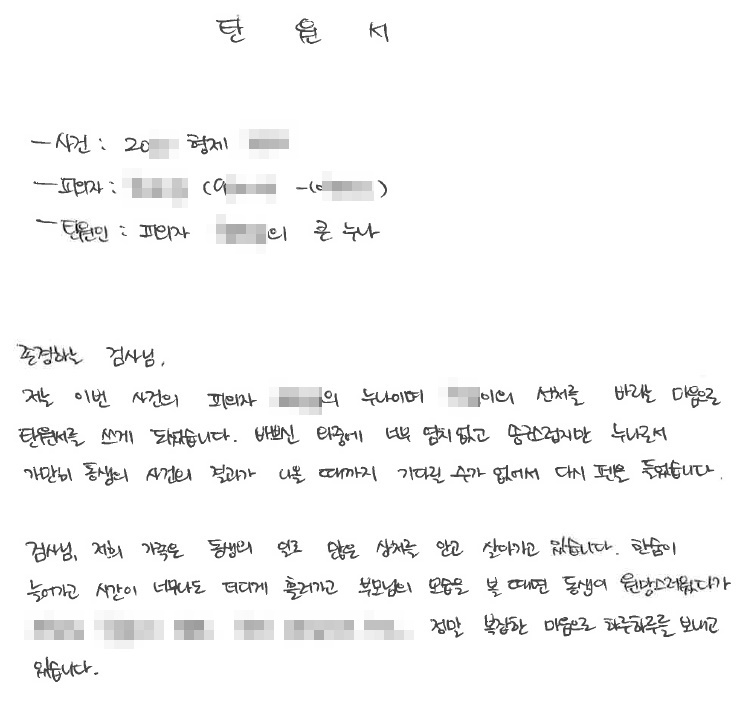 탄 원 서
- 사건 : 20 형제
- 피의자 : (9 -(0 )
- 탄원인 : 피의자 의 큰 누나
존경하는 검사님,
저는 이번 사건의 피의자 의 누나이며 이의 선처를 바라는 마음으로
탄원서를 쓰게 되었습니다. 바쁘신 와중에 너무 염치없고 송구스럽지만 누나로서
가만히 동생의 사건의 결과가 나올 때까지 기다릴 수가 없어서 다시 펜을 들었습니다.
검사님, 저희 가족은 동생의 일로 많은 상처를 안고 살아가고 있습니다. 한숨이
늘어가고 시간이 너무나도 더디게 흘러가고 부모님의 모습을 볼 때면 동생이 원망스러웠다가
정말 복잡한 마음으로 하루하루를 보내고
있습니다.